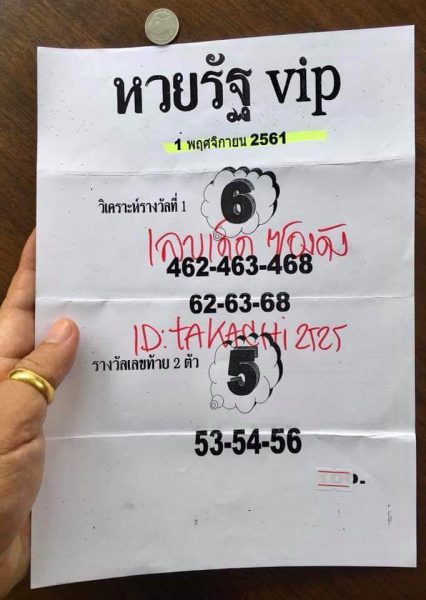 หวยรัฐ vip
1 พฤศจิกายน 2561
วิเคราะห์รางวัลที่ 1
6
เลขเด็ด ซองดัง
462-463-468
62-63-68
ID: TAKASHi 2525
รางวัลเลขท้าย 2 ตัว
5
53-54-56
100.-